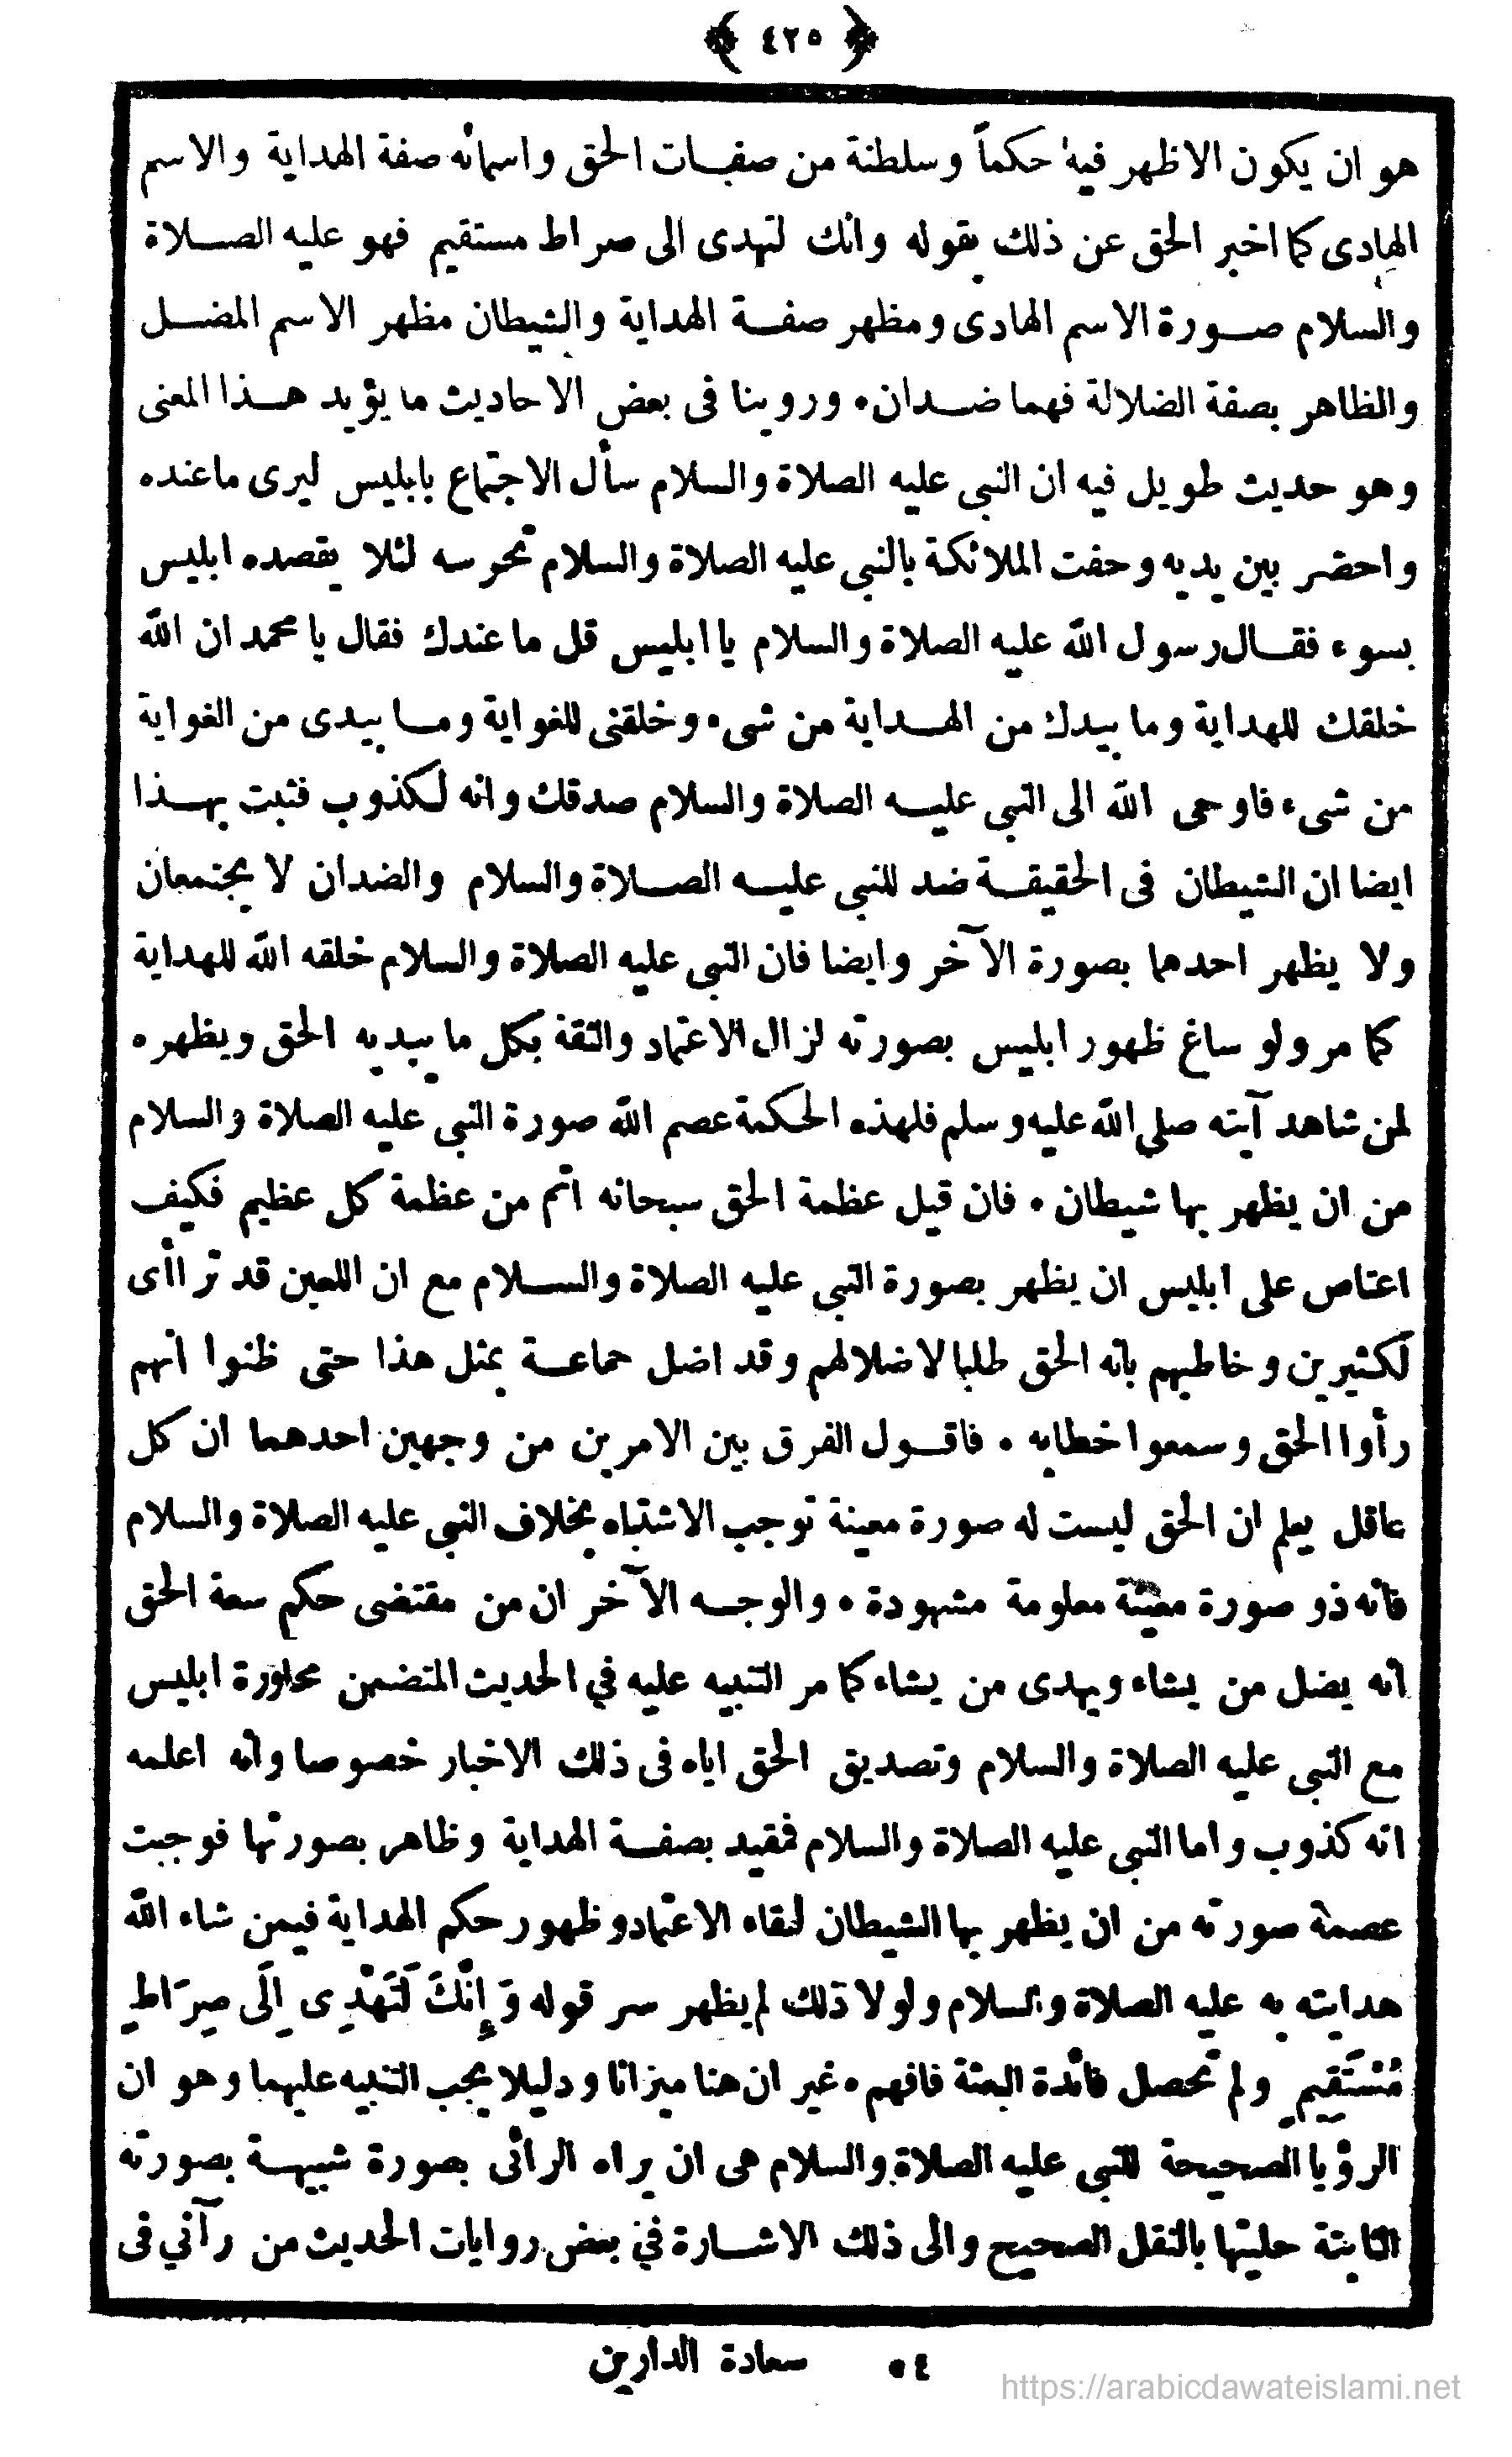 ﴿ ٤٢٥ ﴾
هو ان يكون الاظهر فيه حكماً وسلطنة من صفات الحق واسمائه صفة الهداية والاسم
الهادى كما اخبر الحق عن ذلك بقوله وانك لتهدى الى صراط مستقيم فهو عليه الصلاة
والسلام صورة الاسم الهادى ومظهر صفة الهداية والشيطان مظهر الاسم المضل
والظاهر بصفة الضلالة فهما ضدان • وروينا فى بعض الاحاديث ما يؤيد هذا المعنى
وهو حديث طويل فيه ان النبى عليه الصلاة والسلام سأل الاجتماع بابليس ليرى ماعنده
واحضر بين يديه وحفت الملائكة بالنبى عليه الصلاة والسلام تحرسه لئلا يقصده ابليس
بسوء فقال رسول الله عليه الصلاة والسلام يا ابليس قل ما عندك فقال يا محمد ان الله
خلقك للهداية وما بيدك من الهداية من شىء وخلقنى للغواية وما بيدى من الغواية
من شىء فاوحى الله الى النبى عليه الصلاة والسلام صدقك وانه لكذوب فثبت بهذا
ايضا ان الشيطان فى الحقيقة ضد للنبى عليه الصلاة والسلام والضدان لا يجتمعان
ولا يظهر احدهما بصورة الآخر وايضا فان النبى عليه الصلاة والسلام خلقه الله للهداية
كما مر ولو ساغ ظهور ابليس بصورته لزال الاعتماد والثقة بكل ما يبديه الحق ويظهره
لمن شاهد آيته صلى الله عليه وسلم فلهذه الحكمة عصم الله صورة النبى عليه الصلاة والسلام
من ان يظهر بها شيطان • فان قيل عظمة الحق سبحانه اتم من عظمة كل عظيم فكيف
اعتاص على ابليس ان يظهر بصورة النبى عليه الصلاة والسلام مع ان اللعين قد تراأى
لكثيرين وخاطبهم بانه الحق طلبا لاضلالهم وقد اضل جماعة بمثل هذا حتى ظنوا انهم
رأوا الحق وسمعوا خطابه • فاقول الفرق بين الامرين من وجهين احدهما ان كل
عاقل يعلم ان الحق ليست له صورة معينة توجب الاشتباه بخلاف النبى عليه الصلاة والسلام
فانه ذو صورة معينة معلومة مشهودة • والوجه الآخر ان من مقتضى حكم سعة الحق
انه يضل من يشاء ويهدى من يشاء كما مر التنبيه عليه في الحديث المتضمن محاورة ابليس
مع النبى عليه الصلاة والسلام وتصديق الحق اياه فى ذلك الاخبار خصوصا وانه اعلمه
انه كذوب واما النبى عليه الصلاة والسلام فمقيد بصفة الهداية وظاهر بصورتها فوجبت
عصمة صورته من ان يظهر بها الشيطان لبقاء الاعتماد وظهور حكم الهداية فيمن شاء الله
هدايته به عليه الصلاة والسلام ولولا ذلك لم يظهر سر قوله وَإِنَّكَ لَتَهْدِى إِلَى صِرَاطٍ
مُسْتَقِيمٍ ولم تحصل فائدة البعثة فافهم • غير ان هنا ميزانا ودليلا يجب التنبيه عليهما وهو ان
الرؤيا الصحيحة للنبى عليه الصلاة والسلام هى ان يراه الرائى بصورة شبيهة بصورته
الثابتة حليتها بالنقل الصحيح والى ذلك الاشارة في بعض روايات الحديث من رآني فى
٥٤ سعادة الدارين
https://arabicdawateislami.net